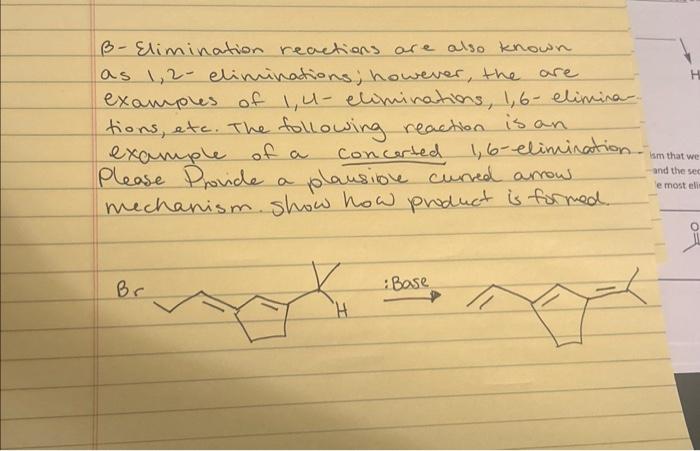 β- Elimination reactions are also known
as 1,2- eliminations; however, the are
examples of 1,4- eliminations, 1,6- elimina-
tions, etc. The following reaction is an
example of a concerted 1,6-elimination.
Please Provide a plausible curved arrow
mechanism. Show how product is formed.
Br
H
:Base
H
ism that we
and the sec
e most eli
O